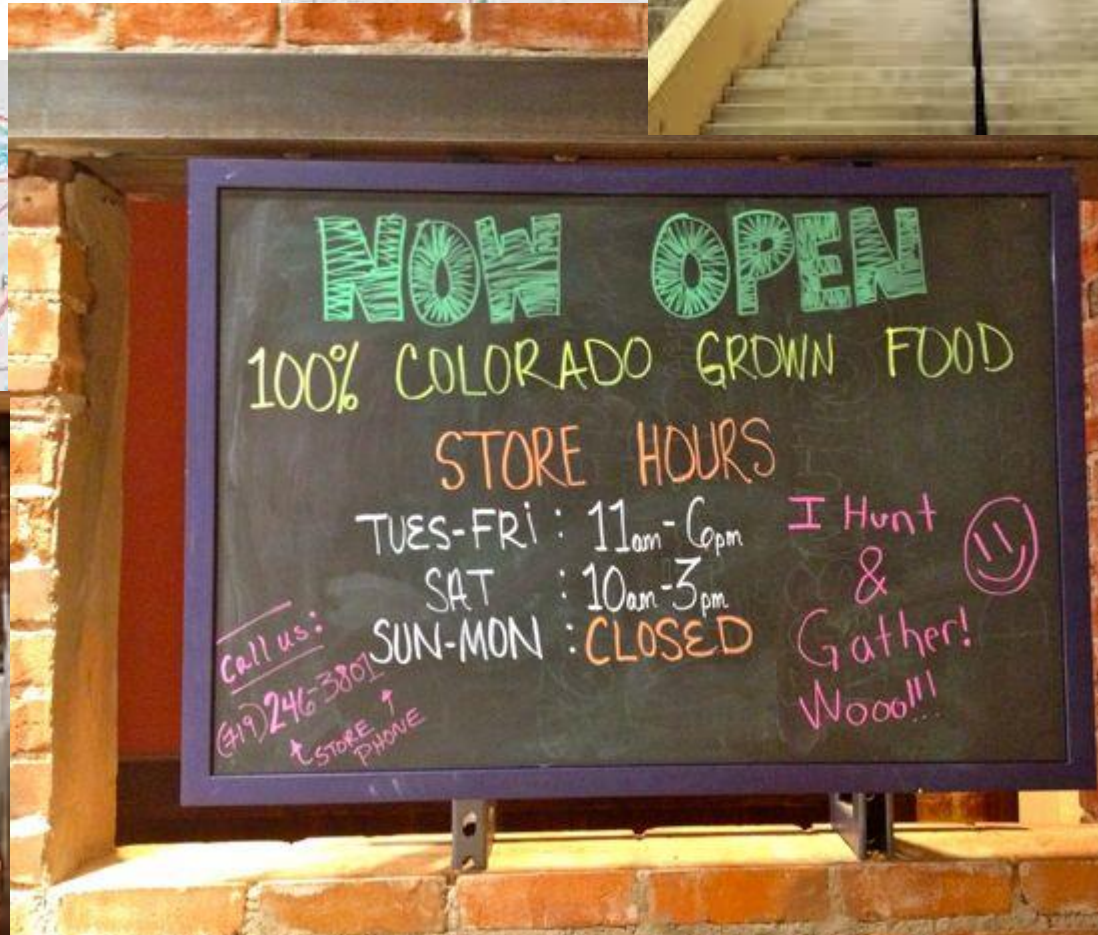 NOW OPEN
100% COLORADO GROWN FOOD
STORE HOURS
TUES-FRI : 11am-6pm
SAT : 10am-3pm
SUN-MON : CLOSED
Call us:
(719) 246-3801
STORE
PHONE
I Hunt
&
Gather!
Wooo!!!